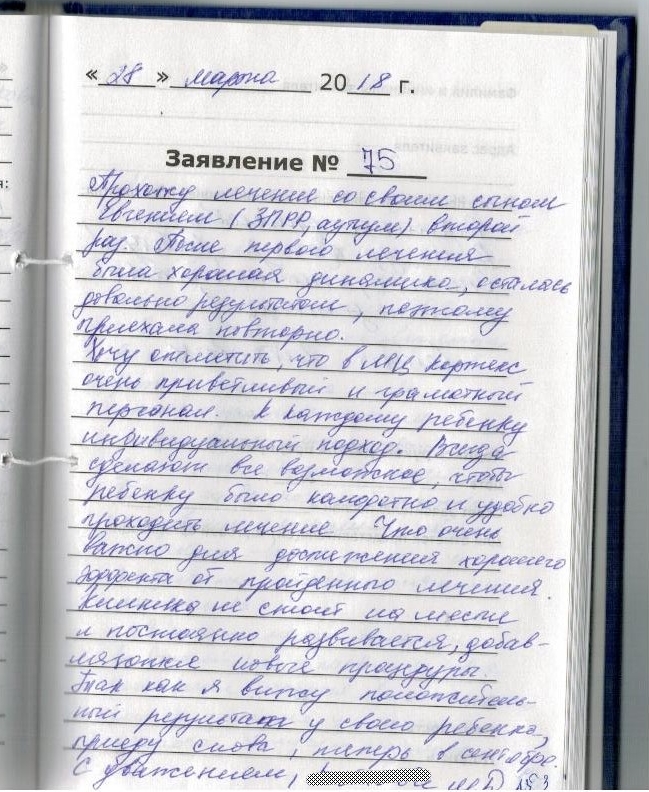 « 28 » марта 2018 г.
Заявление № 75
Прохожу лечение со своим сыном
Евгением (ЗПРР, аутизм) второй
раз. После первого лечения
была хорошая динамика, осталась
довольна результатом, поэтому
приехала повторно.
Хочу отметить, что в МЦ Кортекс
очень приветливый и грамотный
персонал. К каждому ребенку
индивидуальный подход. Всегда
сделают все возможное, чтобы
ребенку было комфортно и удобно
проходить лечение Что очень
важно для достижения хорошего
эффекта от пройденного лечения.
Клиника не стоит на месте
и постоянно развивается, добав-
ляются новые процедуры.
Так как я вижу положитель-
ный результат у своего ребенка,
приеду снова, теперь в сентябре.
С уважением,